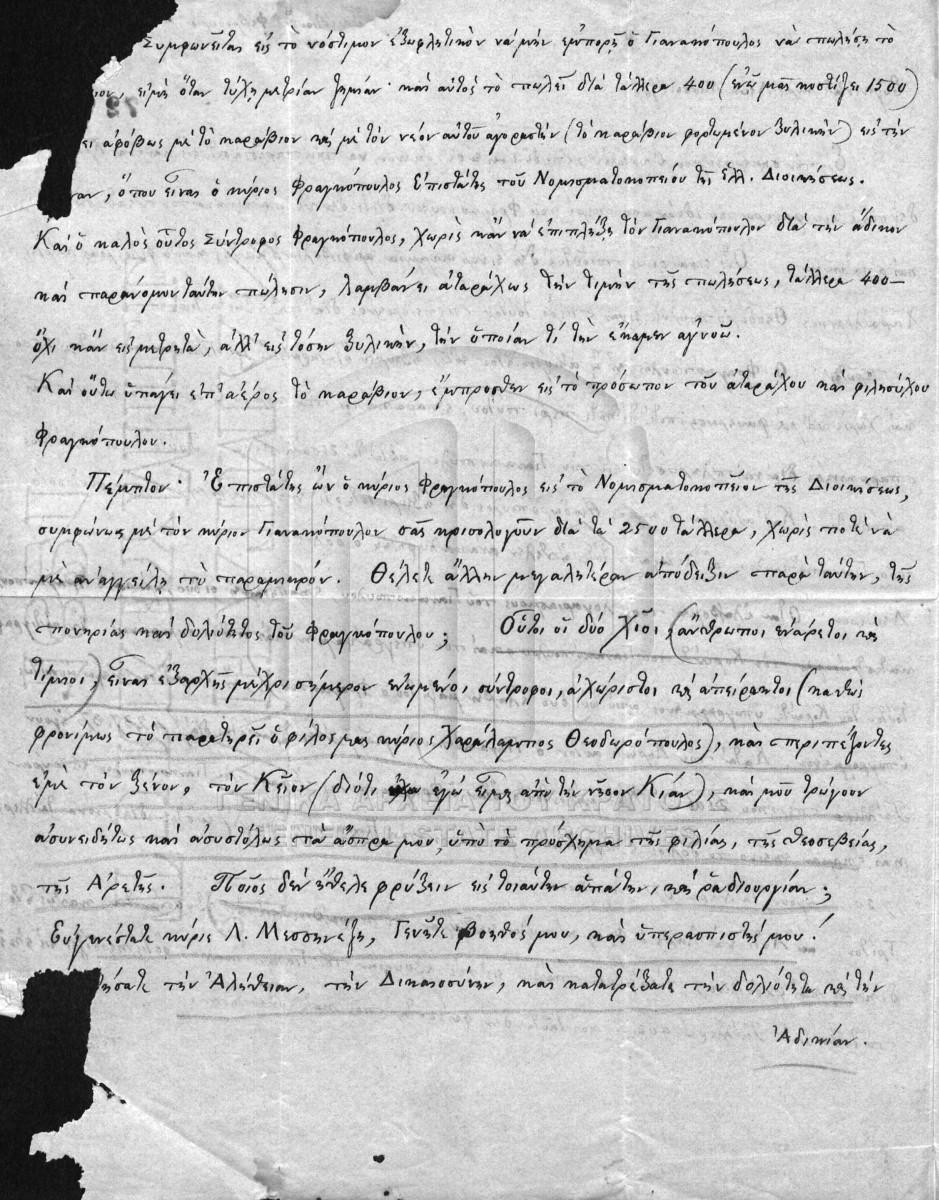 Συμφωνεῖται εἰς τὸ νόστιμον ἐξωφλητικὸν νὰ μὴν ἐμπορῇ ὁ Γιανακόπουλος νὰ πωλήσῃ τὸ
ιον, εἰμὴ ὅταν τύχῃ μετρίαν ζημίαν· καὶ αὐτὸς τὸ πωλεῖ διὰ τάλλερα 400 (ἐνῷ μᾶς κοστίζει 1500)
ει ἀφόβως μὲ τὸ καράβιον καὶ μὲ τὸν νέον αὐτοῦ ἀγοραστὴν (τὸ καράβιον φορτωμένον ξυλικὴν) εἰς τὴν
ναν, ὅπου εἶναι ὁ κύριος Φραγκόπουλος Ἐπιστάτης τοῦ Νομισματοκοπείου τῆς Ἑλλ. Διοικήσεως.
Καὶ ὁ καλὸς οὗτος Σύντροφος Φραγκόπουλος, χωρὶς κἂν νὰ ἐπιπλήξῃ τὸν Γιανακόπουλον διὰ τὴν ἄδικον
καὶ παράνομον ταύτην πώλησιν, λαμβάνει ἀταράχως τὴν τιμὴν τῆς πωλήσεως, τάλλερα 400–
ὄχι κἂν εἰς μετρητὰ, ἀλλ' εἰς τόσην ξυλικὴν, τὴν ὁποίαν τί τὴν ἔκαμεν ἀγνοῶ.
Καὶ οὕτω ὑπάγει ἐπ' ἀέρος τὸ καράβιον, ἔμπροσθεν εἰς τὸ πρόσωπον τοῦ ἀταράχου καὶ φιλησύχου
Φραγκόπουλου.
Πέμπτον· Ἐπιστάτης ὢν ὁ κύριος Φραγκόπουλος εἰς τὸ Νομισματοκοπεῖον τῆς Διοικήσεως,
συμφώνως μὲ τὸν κύριον Γιανακόπουλον σᾶς κρισολογοῦν διὰ τὰ 2500 τάλλερα, χωρὶς ποτὲ νὰ
μὲ ἀναγγείλῃ τὸ παραμικρόν. Θέλετε ἄλλην μεγαλητέραν ἀπόδειξιν παρὰ ταύτην, τῆς
πονηρίας καὶ δολιότητος τοῦ Φραγκοπούλου; Οὗτοι οἱ δύο Χῖοι, (ἄνθρωποι ἐνάρετοι καὶ
τίμιοι,) εἶναι ἐξ ἀρχῆς μέχρι σήμερον ἑνωμένοι, σύντροφοι, ἀχώριστοι καὶ ἀπείρακτοι (καθὼς
φρονίμως τὸ παρατηρεῖ ὁ φίλος μας κύριος Χαράλαμπος Θεοδωρόπουλος), καὶ περιπαίζοντες
ἐμὲ τὸν ξένον, τὸν Κεῖον (διότι ἐγὼ εἶμαι ἀπὸ τὴν νῆσον Κίαν), καὶ μοῦ τρώγουν
ἀσυνειδήτως καὶ ἀσυστόλως τὰ ἄσπρα μου, ὑπὸ τὸ πρόσχημα τῆς φιλίας, τῆς θεοσεβείας,
τῆς Ἀρετῆς. Ποῖος δὲν ἤθελε φρύξειν εἰς τοιαύτην ἀπάτην, καὶ ῥᾳδιουργίαν;
Εὐγενέστατε κύριε Λ. Μεσσηνέζη, Γενῆτε βοηθός μου, καὶ ὑπερασπιστής μου!
ήσατε τὴν Ἀλήθειαν, τὴν Δικαιοσύνην, καὶ κατατρέξατε τὴν δολιότητα καὶ τὴν
Ἀδικίαν.